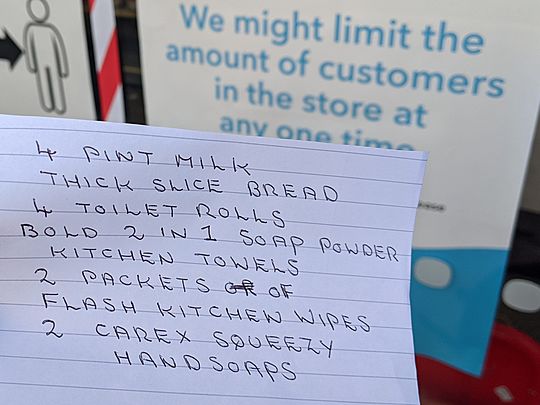 We might limit the
amount of customers
in the store at
any one time
4 PINT MILK
THICK SLICE BREAD
4 TOILET ROLLS
BOLD 2 IN 1 SOAP POWDER
KITCHEN TOWELS
2 PACKETS OR OF
FLASH KITCHEN WIPES
2 CAREX SQUEEZY
HANDSOAPS